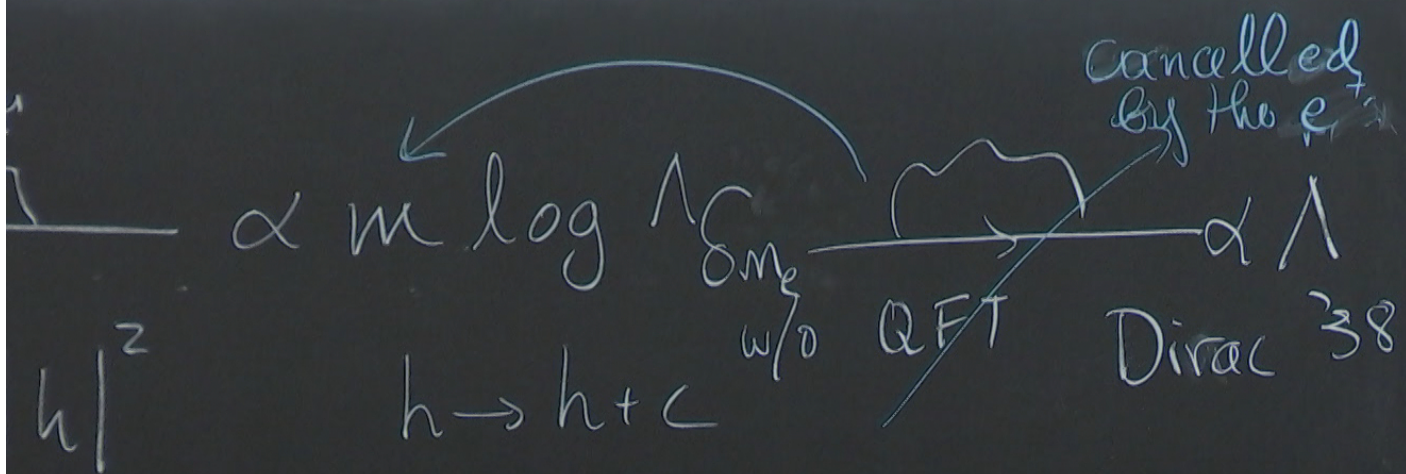 cancelled
by the e⁺
∝ m log Λ δmₑ ∝ Λ
w/o QFT Dirac '38
h|² h → h + c